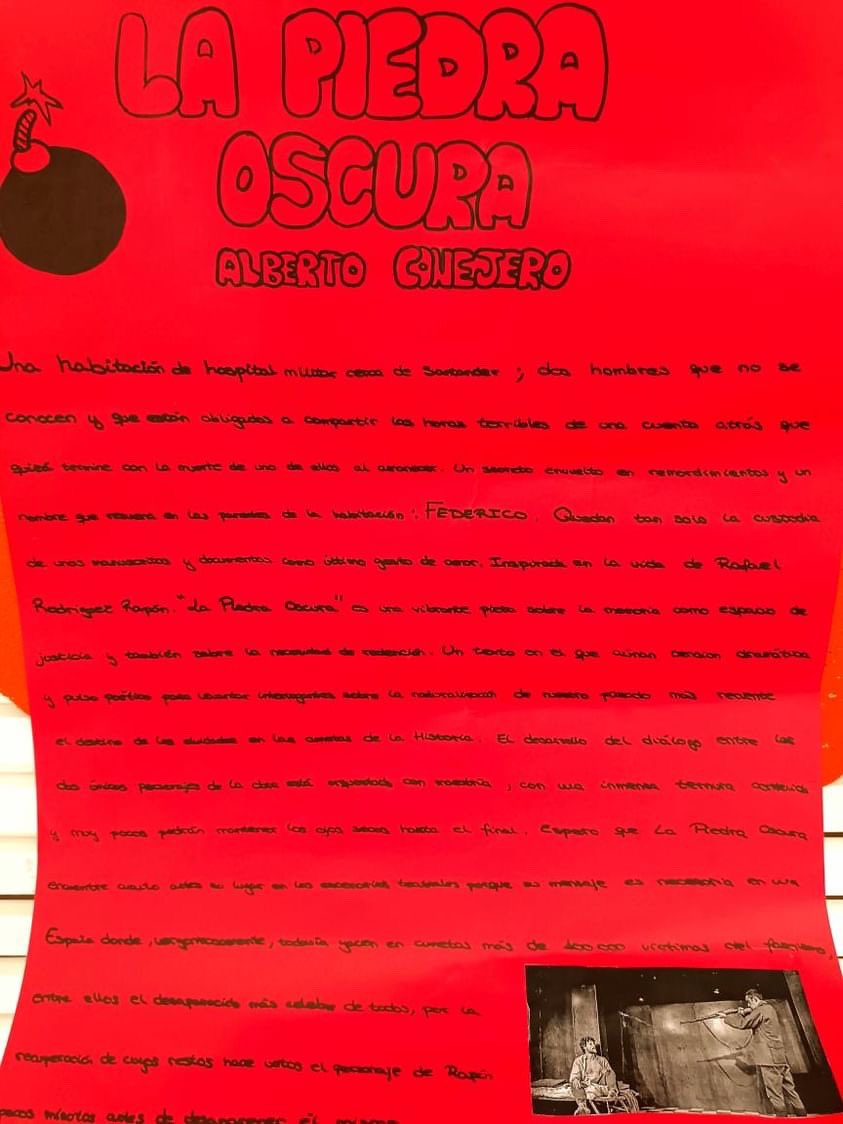 LA PIEDRA
OSCURA
ALBERTO CONEJERO
Una habitación de hospital militar cerca de Santander ; dos hombres que no se
conocen y que están obligados a compartir las horas terribles de una cuenta atrás que
quizá termine con la muerte de uno de ellos al amanecer. Un secreto envuelto en remordimientos y un
nombre que resuena en las paredes de la habitación : FEDERICO. Quedan tan solo la custodia
de unos manuscritos y documentos como último gesto de amor. Inspirada en la vida de Rafael
Rodríguez Rapún. "La Piedra Oscura" es una vibrante pieza sobre la memoria como espacio de
justicia y también sobre la necesidad de redención. Un texto en el que aúnan tensión dramática
y pulso poético para levantar interrogantes sobre la naturalización de nuestro pasado más reciente
el destino de los olvidados en las cunetas de la Historia. El desarrollo del diálogo entre los
dos únicos personajes de la obra está orquestado con maestría , con una inmensa ternura contenida
y muy pocos podrán mantener los ojos secos hasta el final. Espero que La Piedra Oscura
encuentre cuanto antes su lugar en los escenarios teatrales porque su mensaje es necesario en una
España donde , vergonzosamente, todavía yacen en cunetas más de 100.000 víctimas del fascismo,
entre ellos el desaparecido más célebre de todos, por la
recuperación de cuyos restos hace votos el personaje de Rapún
pocos minutos antes de desaparecer él mismo